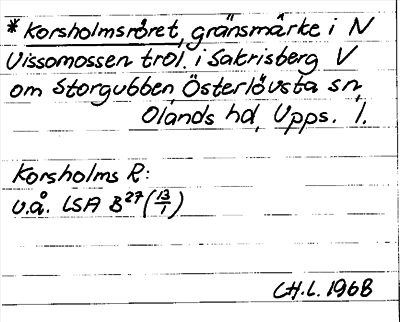 * Korsholmsröret, gränsmärke i N
Vissomossen trol. i Sakrisberg V
om Storgubben, Österlövsta sn,
Olands hd, Upps. l.
Korsholms R:
u.å. LSA B²⁷ (13/1)
C.H.L. 1968